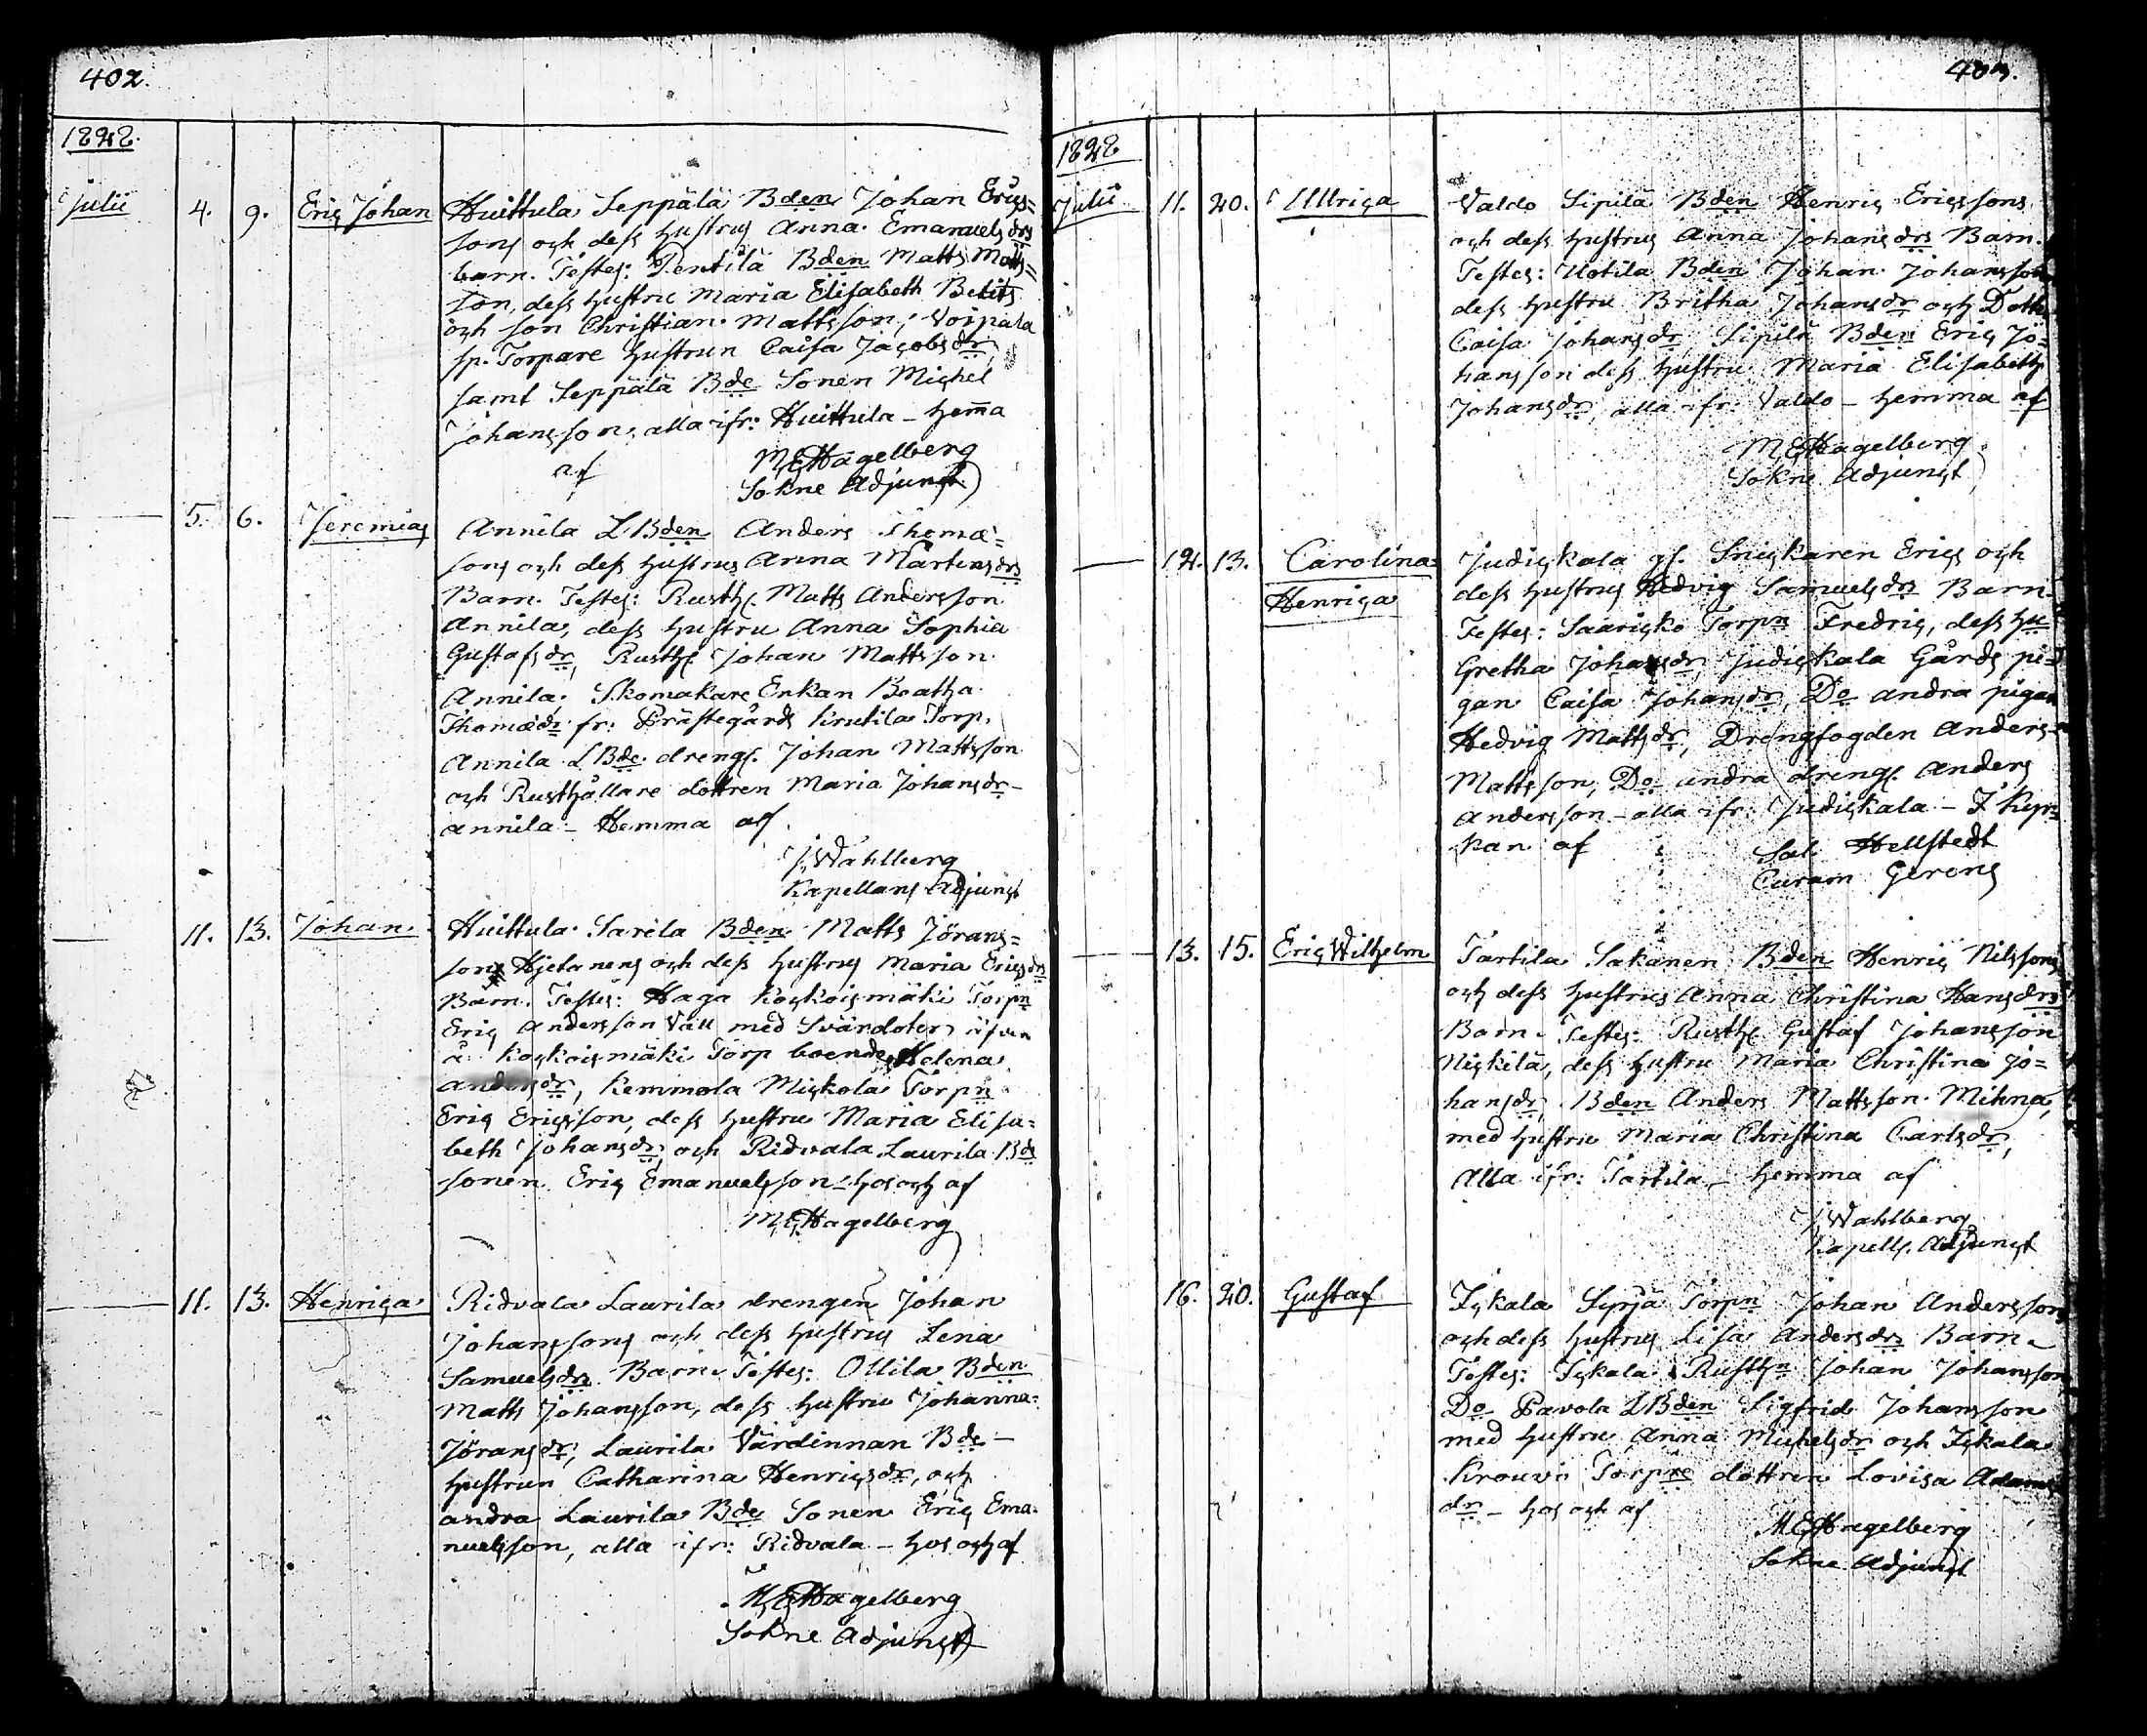 402.
1828.
Julii 4. 9. Eric Johan Huittula Seppälä Bden Johan Erics=
sons och dess hustrus Anna Emanuels drs
barn. Testes: Pentilä Bden Matts Matts=
son, dess hustru Maria Elisabeth
och son Christian Mattsson, Voipala
sp. Torpare hustrun Caisa Jacobsdr,
samt Seppälä Bde Sonen Michel
Johansson, alla ifr: Huittula – hema
af M E Hagelberg
Sokne Adjunct
5. 6. Jeremias Annila L Bden Anders Thomæ=
sons och dess hustrus Anna Martins drs
Barn. Testes: Rusth. Matts Andersson
Annila, dess hustru Anna Sophia
Gustafsdr, Rusth. Johan Mattsson
Annila, Skomakare Enkan Beatha
Thomædr fr: Prästegårds Torp,
Annila L Bde dreng. Johan Mattsson
och Rusthållare dottren Maria Johansdr –
annila – Hemma af
J Wahlberg
Kapellans Adjunct
11. 13. Johan Huittula Sarila Bden Matts Jörans=
sons Hjetanens och dess hustrus Maria Ericsdrs
Barn. Testes: Haga Koskoismäki Torpn
Eric Andersson Väll med Svärdoter äfven
å Koskoismäki Torp boende Helena
andersdr, Kemmola Mickola Torpn
Eric Ericsson, dess hustru Maria Elisa=
beth Johansdr, och Ridvala Laurila Bde
sonen Eric Emanuelsson – hos och af
M E Hagelberg
11. 13. Henrica Ridvala Laurila drengen Johan
Johanssons och dess hustrus Lena
Samuelsdrs Barn. Testes: Ollila Bden
Matts Johansson, dess hustru Johanna
Jöransdr, Laurila Värdinnan Bde –
hustrun Catharina Henricsdr, och
andra Laurila Bde Sonen Eric Ema-
nuelsson, alla ifr: Ridvala – hos och af
M E Hagelberg
Sokne Adjunct
403.
1828
Julii 11. 20. Ullrica Valdo Sipilä Bden Henric Ericssons
och dess hustrus Anna Johansdrs Barn.
Testes: Uotila Bden Johan Johansson
dess hustru Britha Johansdr och Dottr
Caisa Johansdr Sipilä Bden Eric Jo=
hansson dess hustru Maria Elisabeth
Johansdr, alla ifr: Valdo – hemma af
M E Hagelberg
Sokne Adjunct
12. 13. Carolina Judickala gl. Snickaren Erics och
Henrica dess hustrus Hedvig Samuelsdrs Barn.
Testes: Saaricko Torpn Fredric, dess hu
Gretha Johansdr, Judickala Gårds pi=
gan Caisa Johansdr, Do andra pigan
Hedvig Mattsdr, Drengfogden Anders
Mattsson, Do andra dreng. Anders
Andersson – alla ifr: Judickala – I Kyr=
kan af Sal. Hellstedt
Curam Gerens
13. 15. Eric Wilhelm Tartila Sakanen Bden Henric Nilssons
och dess hustrus Anna Christina Hansdrs
Barn. Testes: Rusth. Gustaf Johansson
Nickilä, dess hustru Maria Christina Jo=
hansdr, Bden Anders Mattsson Mihna,
med hustru Maria Christina Carlsdr,
Alla ifr: Tartila – hemma af
J Wahlberg
Kapells. Adjunct
16. 20. Gustaf Ickala Syrjä Torpn Johan Anderssons
och dess hustrus Lisa Andersdrs Barn.
Testes: Ickala Rusthn Johan Johansson
Do Pavola L Bden Sigfrid Johansson
med hustru Anna Michelsdr och Ickala
Krouvi Torpre dottren Lovisa Adams
dr – hos och af
M E Hagelberg
Sokne Adjunct